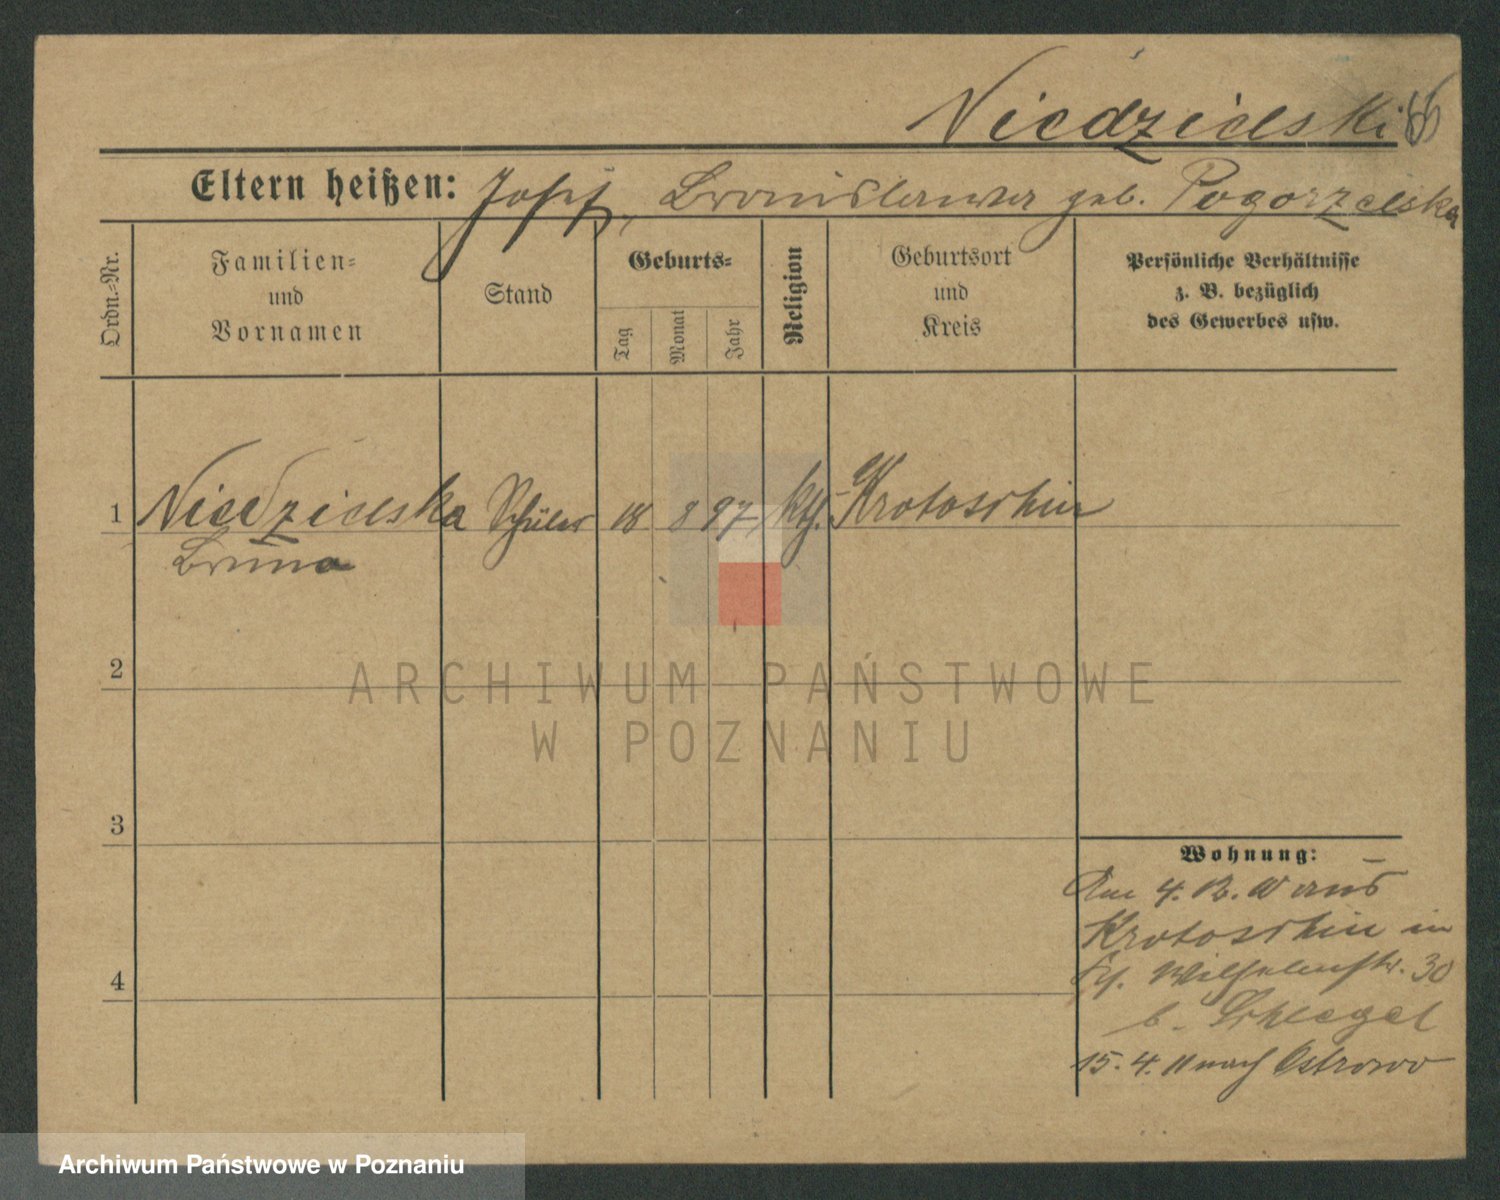 Niedzielski
Eltern heißen: Josef, Bronislawa geb. Pogorzelska
Ordn.-Nr.
Familien-
und
Vornamen
Stand
Geburts-
Tag
Monat
Jahr
Religion
Geburtsort
und
Kreis
Persönliche Verhältnisse
z. B. bezüglich
des Gewerbes usw.
1 Niedzielska Schüler 18 8 97 kth. Krotoschin
Bruno
2
ARCHIWUM PAŃSTWOWE
W POZNANIU
3
4
Wohnung:
Am 4. 12. 10 aus
Krotoschin in
Wilhelmstr. 30
b. Schlegel
15. 4. 11 nach Ostrowo
Archiwum Państwowe w Poznaniu